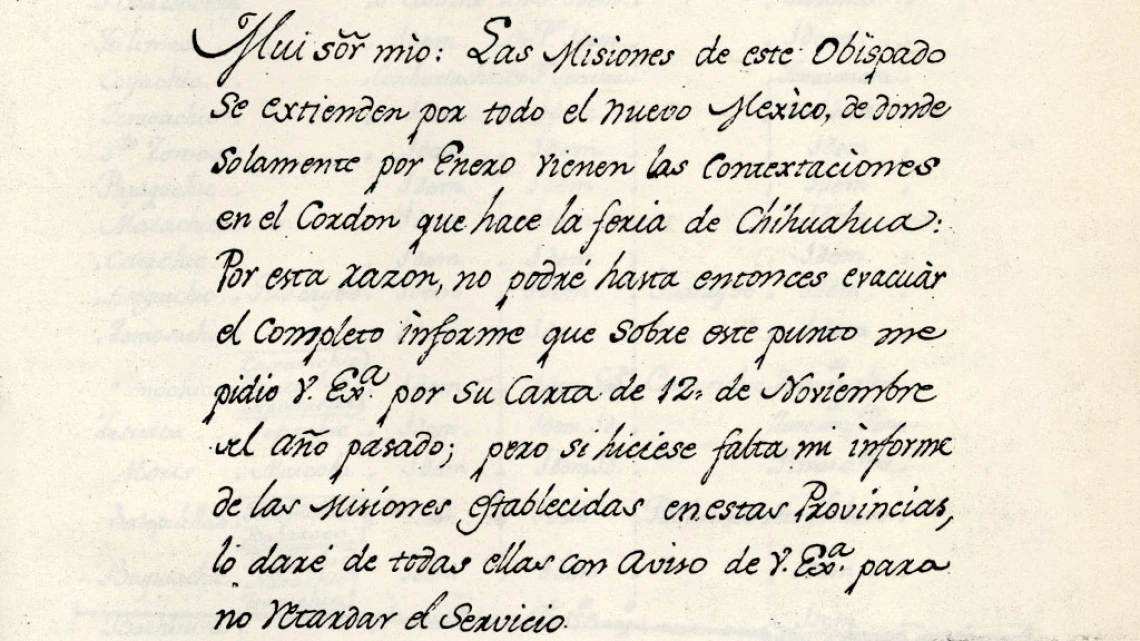 Mui sõr mio: Las Misiones de este Obispado
se extienden por todo el nuevo Mexìco, de donde
solamente por Enero vienen las Contextaciones
en el Cordon que hace la feria de Chihuahua:
Por esta razon, no podré hasta entonces evacuàr
el Completo ìnforme que sobre este punto me
pidio V. Exª. por su Carta de 12, de Noviembre
del año pasado; pero si hiciese falta mi ìnforme
de las Misiones establecidas en estas Provincias,
lo daré de todas ellas con aviso de V. Exª. para
no retardar el Servicio.